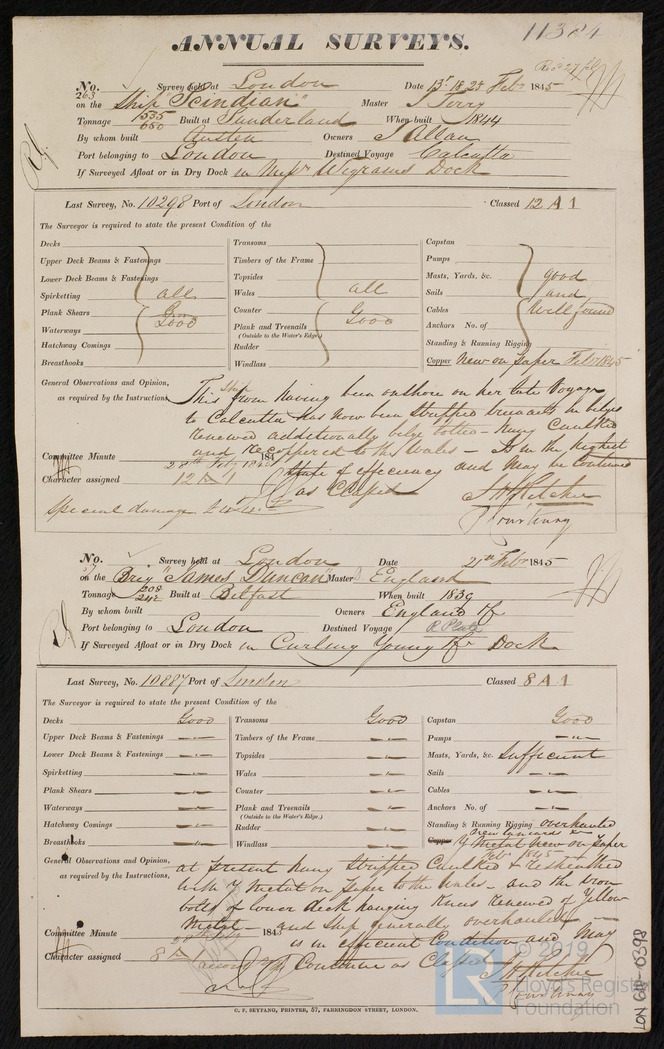 11384
ANNUAL SURVEYS.
No. 263 Survey held at London Date 13th 18 25 Feby 1845
on the Ship "Scindian" Master J Torry
Tonnage 535 650 Built at Sunderland When built 1844
By whom built Austen Owners J Allan
Port belonging to London Destined Voyage Calcutta
If Surveyed Afloat or in Dry Dock in Messrs Wigrams Dock
Last Survey, No. 10298 Port of London Classed 12 A 1
The Surveyor is required to state the present Condition of the
Decks
Upper Deck Beams & Fastenings
Lower Deck Beams & Fastenings
Spirketting all
Plank Shears Good
Waterways
Hatchway Comings
Breasthooks
Transoms
Timbers of the Frame
Topsides
Wales all
Counter Good
Plank and Treenails
(Outside to the Water's Edge)
Rudder
Windlass
Capstan
Pumps
Masts, Yards, &c. good
Sails and
Cables Well found
Anchors No. of
Standing & Running Rigging
Copper New on paper Feby 1845
General Observations and Opinion, as required by the Instructions
This Ship from having been onshore on her late Voyage
to Calcutta has now been Stripped
renewed additionally bolted - hung Caulked
and Recoppered to the Wales - Is in the highest
State of efficiency and May be Continued
as Classed
Committee Minute 28th Feby 1845
Character assigned 12 A 1
Special damage
No. Survey held at London Date 21st Feby 1845
on the Brig "James Duncan" Master England
Tonnage 208 242 Built at Belfast When built 1839
By whom built Owners England &c
Port belonging to London Destined Voyage R Plate
If Surveyed Afloat or in Dry Dock in Curling Young &c Dock
Last Survey, No. 10887 Port of London Classed 8 A 1
The Surveyor is required to state the present Condition of the
Decks Good
Upper Deck Beams & Fastenings — " —
Lower Deck Beams & Fastenings — " —
Spirketting — " —
Plank Shears — " —
Waterways — " —
Hatchway Comings — " —
Breasthooks — " —
Transoms Good
Timbers of the Frame — " —
Topsides — " —
Wales — " —
Counter — " —
Plank and Treenails — " —
(Outside to the Water's Edge.)
Rudder — " —
Windlass — " —
Capstan Good
Pumps — " —
Masts, Yards, &c. Sufficient
Sails — " —
Cables — " —
Anchors No. of — " —
Standing & Running Rigging overhauled
Copper Y Metal New on paper
Feby 1845
General Observations and Opinion, as required by the Instructions,
at present hung Stripped Caulked & resheathed
with Y Metal on paper to the Wales - and the iron
bolts of lower deck hanging Knees renewed of Yellow
Metal - and Ship generally overhauled -
is in efficient Condition and May
Continue as Classed
Committee Minute 28th Feby 1845
Character assigned 8 A 1
C. F. SEYFANG, PRINTER, 57, FARRINGDON STREET, LONDON.
LR
© 2019
Lloyd's Register
Foundation
LON 619-0398